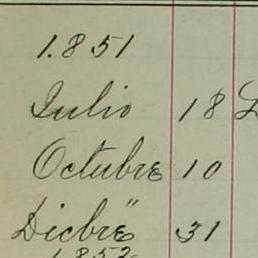 1.851
Julio 18
Octubre 10
Dicbrẽ" 31
1852